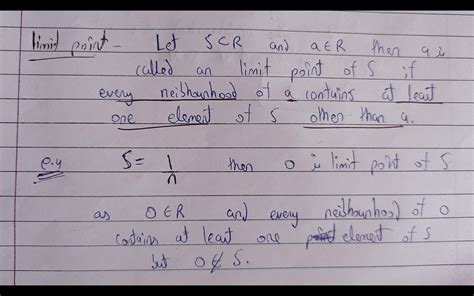 limit point - Let S⊂R and a∈R then a is
called an limit point of S if
every neibhourhood of a contains at least
one element of S other than a.
e.g S = 1/n then 0 is limit point of S
as 0∈R and every neibhourhood of 0
contains at least one element of S
but 0∉S.